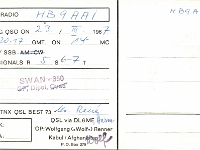 RADIO HB9AA1
QSO ON 23. III 1967
20.47 GMT. ON 14 MC
SSB AM-CW
SIGNALS R 5 S 6-7 T
SWAN - 350
Dipol, Quad
TNX QSO BEST 73
QSL via DL6ME
OP. Wolfgang (»Wolf«) Renner
Kabul / Afghanistan
P.O. Box 279
HB9A